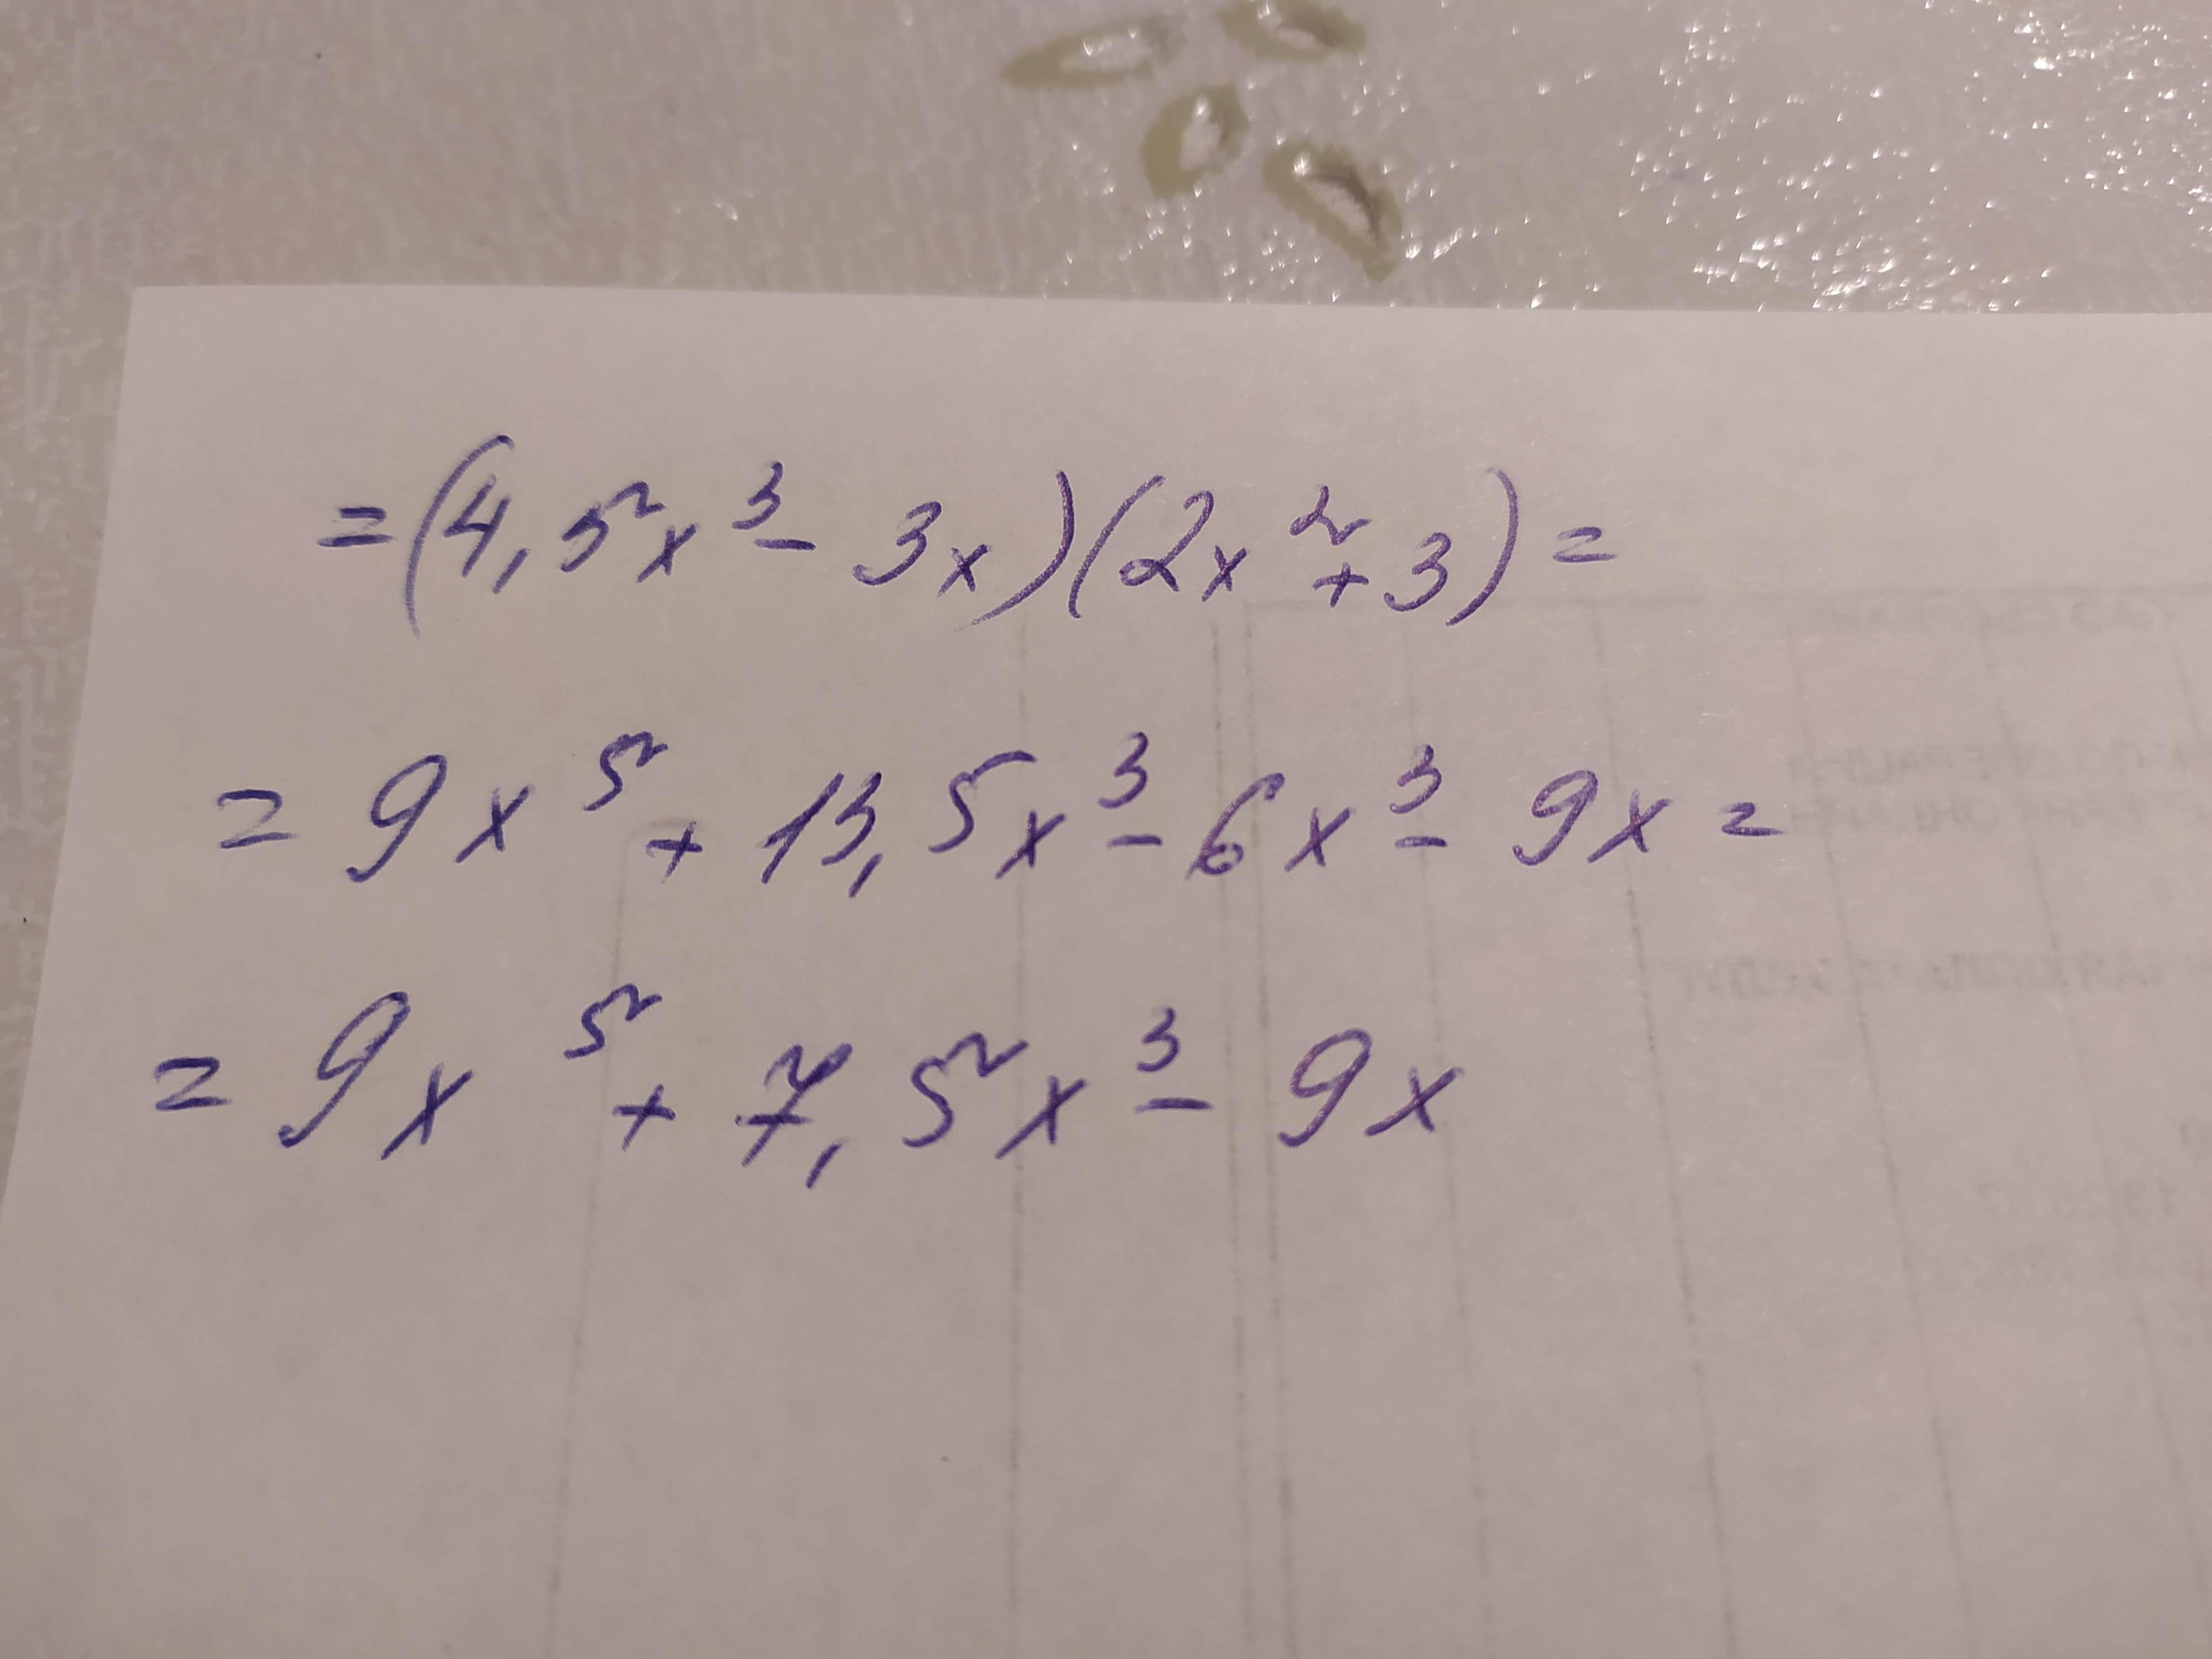 =(4,5x³-3x)(2x²+3)=
=9x⁵+13,5x³-6x³-9x=
=9x⁵+7,5x³-9x